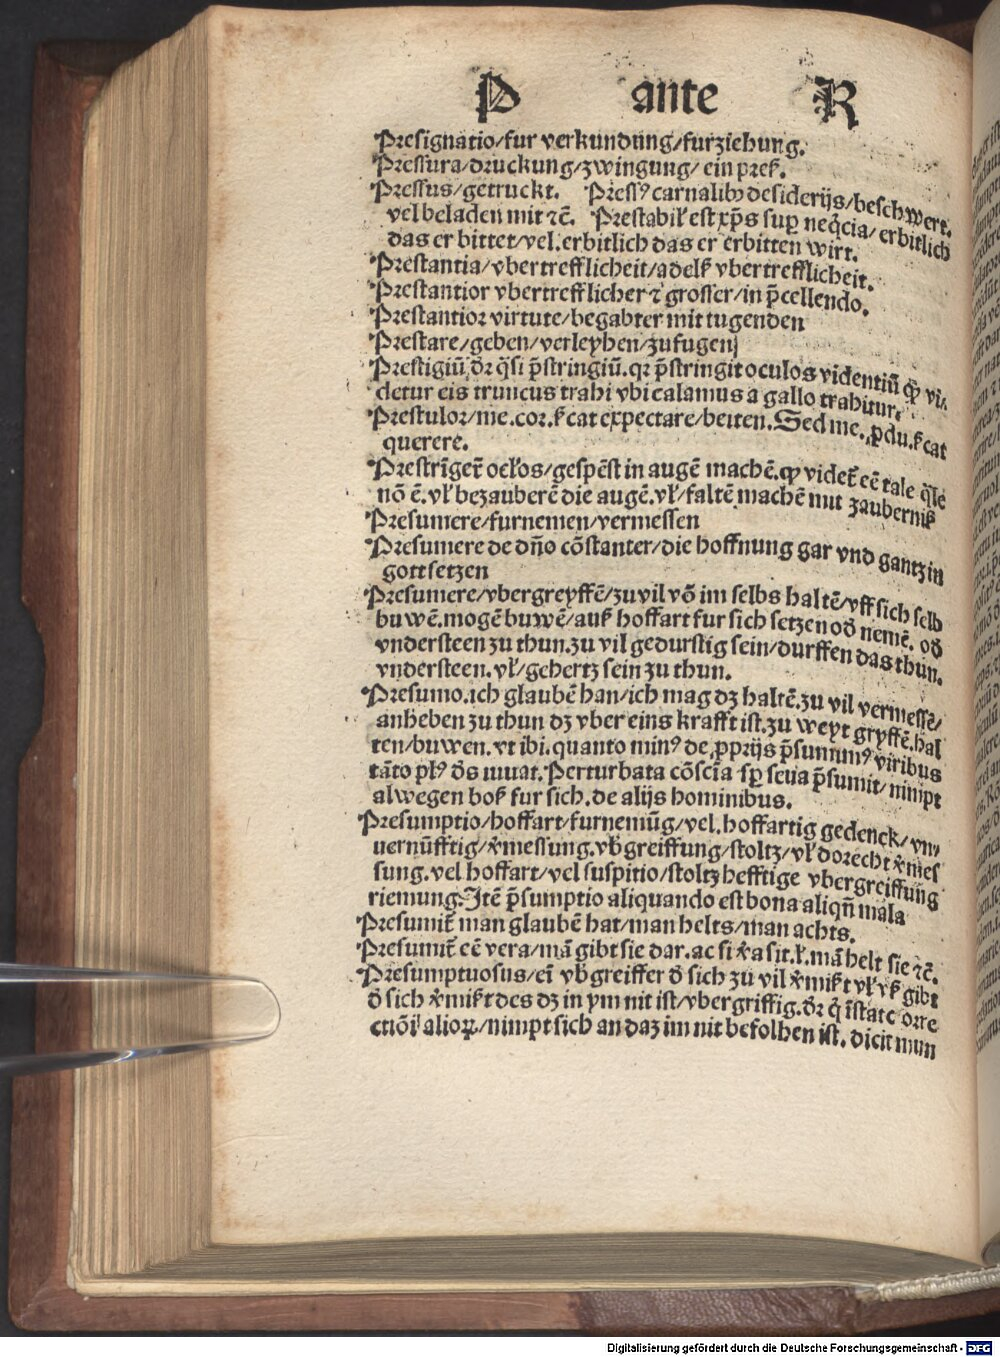 P ante R
Presignatio/fur verkundung/furziehung.
Pressura/druckung/zwingung/ ein preß.
Pressus/getruckt. Pressꝰ carnalibꝫ desiderijs/beschwert.
vel beladen mit ⁊c̄. Prestabil' est xp̄s suꝑ neq̄cia/erbitlich
das er bittet/vel.erbitlich das er erbitten wirt.
Prestantia/vbertrefflicheit/adelß vbertrefflicheit.
Prestantior vbertrefflicher ⁊ grosser/in p̄cellendo.
Prestantior virtute/begabter mit tugenden
Prestare/geben/verleyhen/zufugen
Prestigiū dr̄ q̄si p̄stringiū.qr p̄stringit oculos videntiū ꝙ vi⸗
detur eis truncus trahi vbi calamus a gallo trahitur.
Prestulor/me.cor.ß cat expectare/beiten. Sed me.ꝓdu.ß cat
querere.
Prestrīger̄ ocl'os/gespēst in augē machē.ꝙ videt̄ eē tale q̄le
nō ē.vl' bezauberē die augē.vl'/faltē machē mit zauberniß
Presumere/furnemen/vermessen
Presumere de dn̄o cōstanter/die hoffnung gar vnd gantz in
gott setzen
Presumere/vbergreyffē/zuvil vō im selbs haltē/vff sich selb
buwē.mogē buwē/auß hoffart fur sich setzen od̄ nemē. od̄
vndersteen zu thun.zu vil gedurstig sein/durffen das thun.
vndersteen.vl'/gehertz sein zu thun.
Presumo.ich glaubē han/ich mag dz haltē.zu vil vermessē/
anheben zu thun dz vber eins krafft ist.zu weyt gryffē.hal
ten/buwen.vt ibi.quanto minꝰ de ꝓprijs p̄sumimꝰ viribus
tāto pl'ꝰ d̄s iuuat. Perturbata cōsciā sꝑ seua p̄sumit/nimpt
alwegen boß fur sich.de alijs hominibus.
Presumptio/hoffart/furnemūg/vel.hoffartig gedenck/vn⸗
uernūfftig/v̄messung.vb̄greiffung/stoltz/vl' dorecht v̄mes
sung.vel hoffart/vel suspitio/stoltz hefftige vbergreiffūng
riemung.Itē p̄sumptio aliquando est bona aliqn̄ mala
Presumit̄ man glaubē hat/man helts/man achts.
Presumit̄ eē vera/mā gibt sie dar.ac si v̄a sit.l'.mā helt sie ⁊c̄.
Presumptuosus/ei vb̄greiffer d̄ sich zu vil v̄mißt vl' vß gibt
d̄ sich v̄mißt des dz in ym nit ist/vbergriffig.dr̄ q̄ īstatē orre
ctiōi alioꝝ/nimpt sich an daz im nit befolhen ist. dicit mun
Digitalisierung gefördert durch die Deutsche Forschungsgemeinschaft - DFG